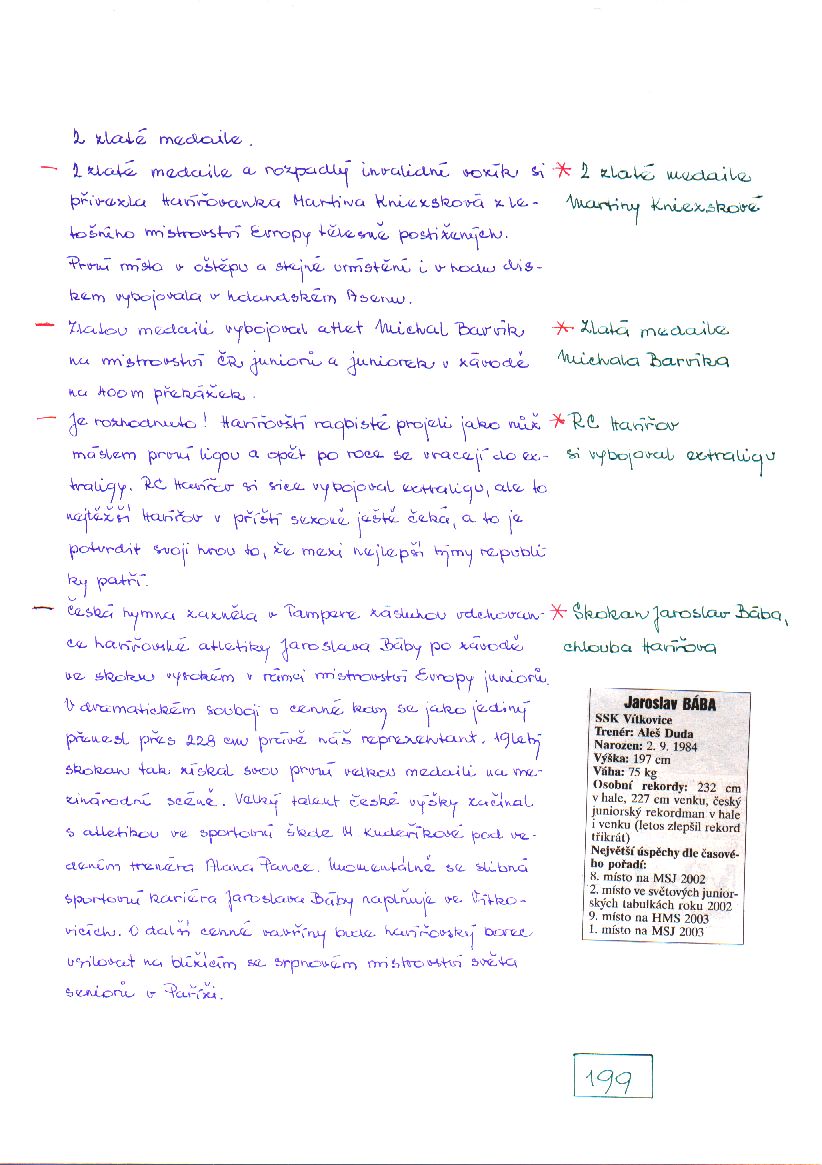 2 zlaté medaile.
– 2 zlaté medaile a rozpadlý invalidní vozík si
přivezla Havířovanka Martina Kniezsková z le-
tošního mistrovství Evropy tělesně postižených.
První místo v oštěpu a stejné umístění i v hodu dis-
kem vybojovala v holandském Assenu.
* 2 zlaté medaile
Martiny Kniezskové
– Zlatou medaili vybojoval atlet Michal Barvík
na mistrovství ČR juniorů a juniorek v závodě
na 400m překážek.
* Zlatá medaile
Michala Barvíka
– Je rozhodnuto! Havířovští ragbisté projeli jako nůž
máslem první ligou a opět po roce se vracejí do ex-
traligy. RC Havířov si sice vybojoval extraligu, ale to
nejtěžší Havířov v příští sezoně ještě čeká, a to je
potvrdit svojí hrou to, že mezi nejlepší týmy republi-
ky patří.
* RC Havířov
si vybojoval extraligu
– Česká hymna zazněla v Tampere zásluhou odchovan-
ce havířovské atletiky Jaroslava Báby po závodě
ve skoku vysokém v rámci mistrovství Evropy juniorů.
V dramatickém souboji o cenné kovy se jako jediný
přenesl přes 228 cm právě náš reprezentant. 19letý
skokan tak získal svou první velkou medaili na me-
zinárodní scéně. Velký talent české výšky začínal
s atletikou ve sportovní škole M Kudeříkové pod ve-
dením trenéra Alana Pance. Momentálně se slibná
sportovní kariéra Jaroslava Báby naplňuje ve Vítko-
vicích. O další cenné vavříny bude havířovský borec
usilovat na blížícím se srpnovém mistrovství světa
seniorů v Paříži.
* Skokan Jaroslav Bába,
chlouba Havířova
Jaroslav BÁBA
SSK Vítkovice
Trenér: Aleš Duda
Narozen: 2. 9. 1984
Výška: 197 cm
Váha: 75 kg
Osobní rekordy: 232 cm
v hale, 227 cm venku, český
juniorský rekordman v hale
i venku (letos zlepšil rekord
třikrát)
Největší úspěchy dle časové-
ho pořadí:
8. místo na MSJ 2002
2. místo ve světových junior-
ských tabulkách roku 2002
9. místo na HMS 2003
1. místo na MSJ 2003
199